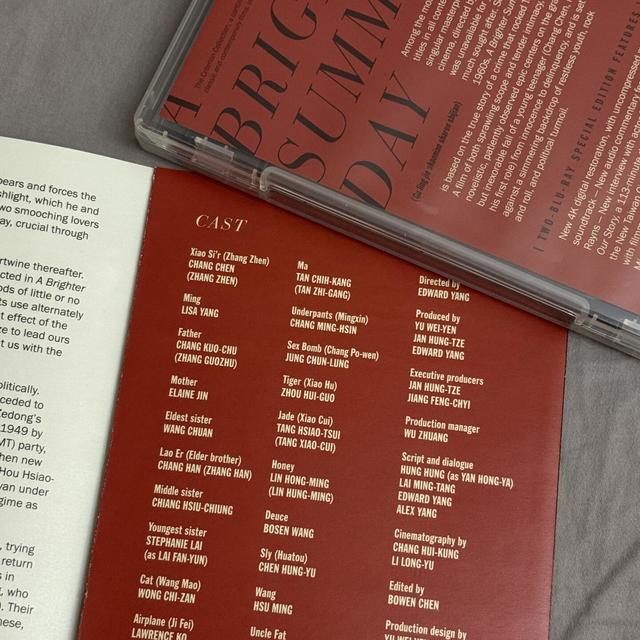 The Criterion Collection, a
classic and contemporary films,
A
BRIG
SUMM
DAY
(Gu ling jie shaonian sharen shijian)
Among the mo
titles in all cont
singular masterp
cinema, directed b
was unavailable for
much sought after. Se
1960s, A Brighter Sum
is based on the true story of a crime that rocked
A film of both sprawling scope and tender intimacy,
novelistic, patiently observed epic centers on the gra
but inexorable fall of a young teenager (Chang Chen,
his first role) from innocence to delinquency, and is set
against a simmering backdrop of restless youth, rock
and roll, and political turmoil.
TWO-BLU-RAY SPECIAL EDITION FEATURES
New 4K digital restoration, with uncompressed
soundtrack
New audio commentary
Rayns
New interview
Our Story, a 113-minute
the New
with
pears and forces the
shlight, which he and
wo smooching lovers
ay, crucial through
rtwine thereafter.
cted in A Brighter
ods of little or no
ts use alternately
t effect of the
ze to lead ours
t us with the
olitically.
ceded to
Zedong's
1949 by
MT) party,
hen new
Hou Hsiao-
van under
gime as
, trying
return
s in
g, who
). Their
nese,
CAST
Xiao Si'r (Zhang Zhen)
CHANG CHEN
(ZHANG ZHEN)
Ming
LISA YANG
Father
CHANG KUO-CHU
(ZHANG GUOZHU)
Mother
ELAINE JIN
Eldest sister
WANG CHUAN
Lao Er (Elder brother)
CHANG HAN (ZHANG HAN)
Middle sister
CHIANG HSIU-CHIUNG
Youngest sister
STEPHANIE LAI
(as LAI FAN-YUN)
Cat (Wang Mao)
WONG CHI-ZAN
Airplane (Ji Fei)
LAWRENCE KO
Ma
TAN CHIH-KANG
(TAN ZHI-GANG)
Underpants (Mingxin)
CHANG MING-HSIN
Sex Bomb (Chang Po-wen)
JUNG CHUN-LUNG
Tiger (Xiao Hu)
ZHOU HUI-GUO
Jade (Xiao Cui)
TANG HSIAO-TSUI
(TANG XIAO-CUI)
Honey
LIN HONG-MING
(LIN HUNG-MING)
Deuce
BOSEN WANG
Sly (Huatou)
CHEN HUNG-YU
Wang
HSU MING
Uncle Fat
Directed by
EDWARD YANG
Produced by
YU WEI-YEN
JAN HUNG-TZE
EDWARD YANG
Executive producers
JAN HUNG-TZE
JIANG FENG-CHYI
Production manager
WU ZHUANG
Script and dialogue
HUNG HUNG (as YAN HONG-YA)
LAI MING-TANG
EDWARD YANG
ALEX YANG
Cinematography by
CHANG HUI-KUNG
LI LONG-YU
Edited by
BOWEN CHEN
Production design by